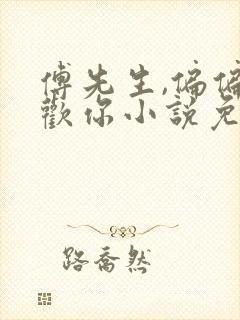 傅先生,偏偏
歡你小說免
路喬然